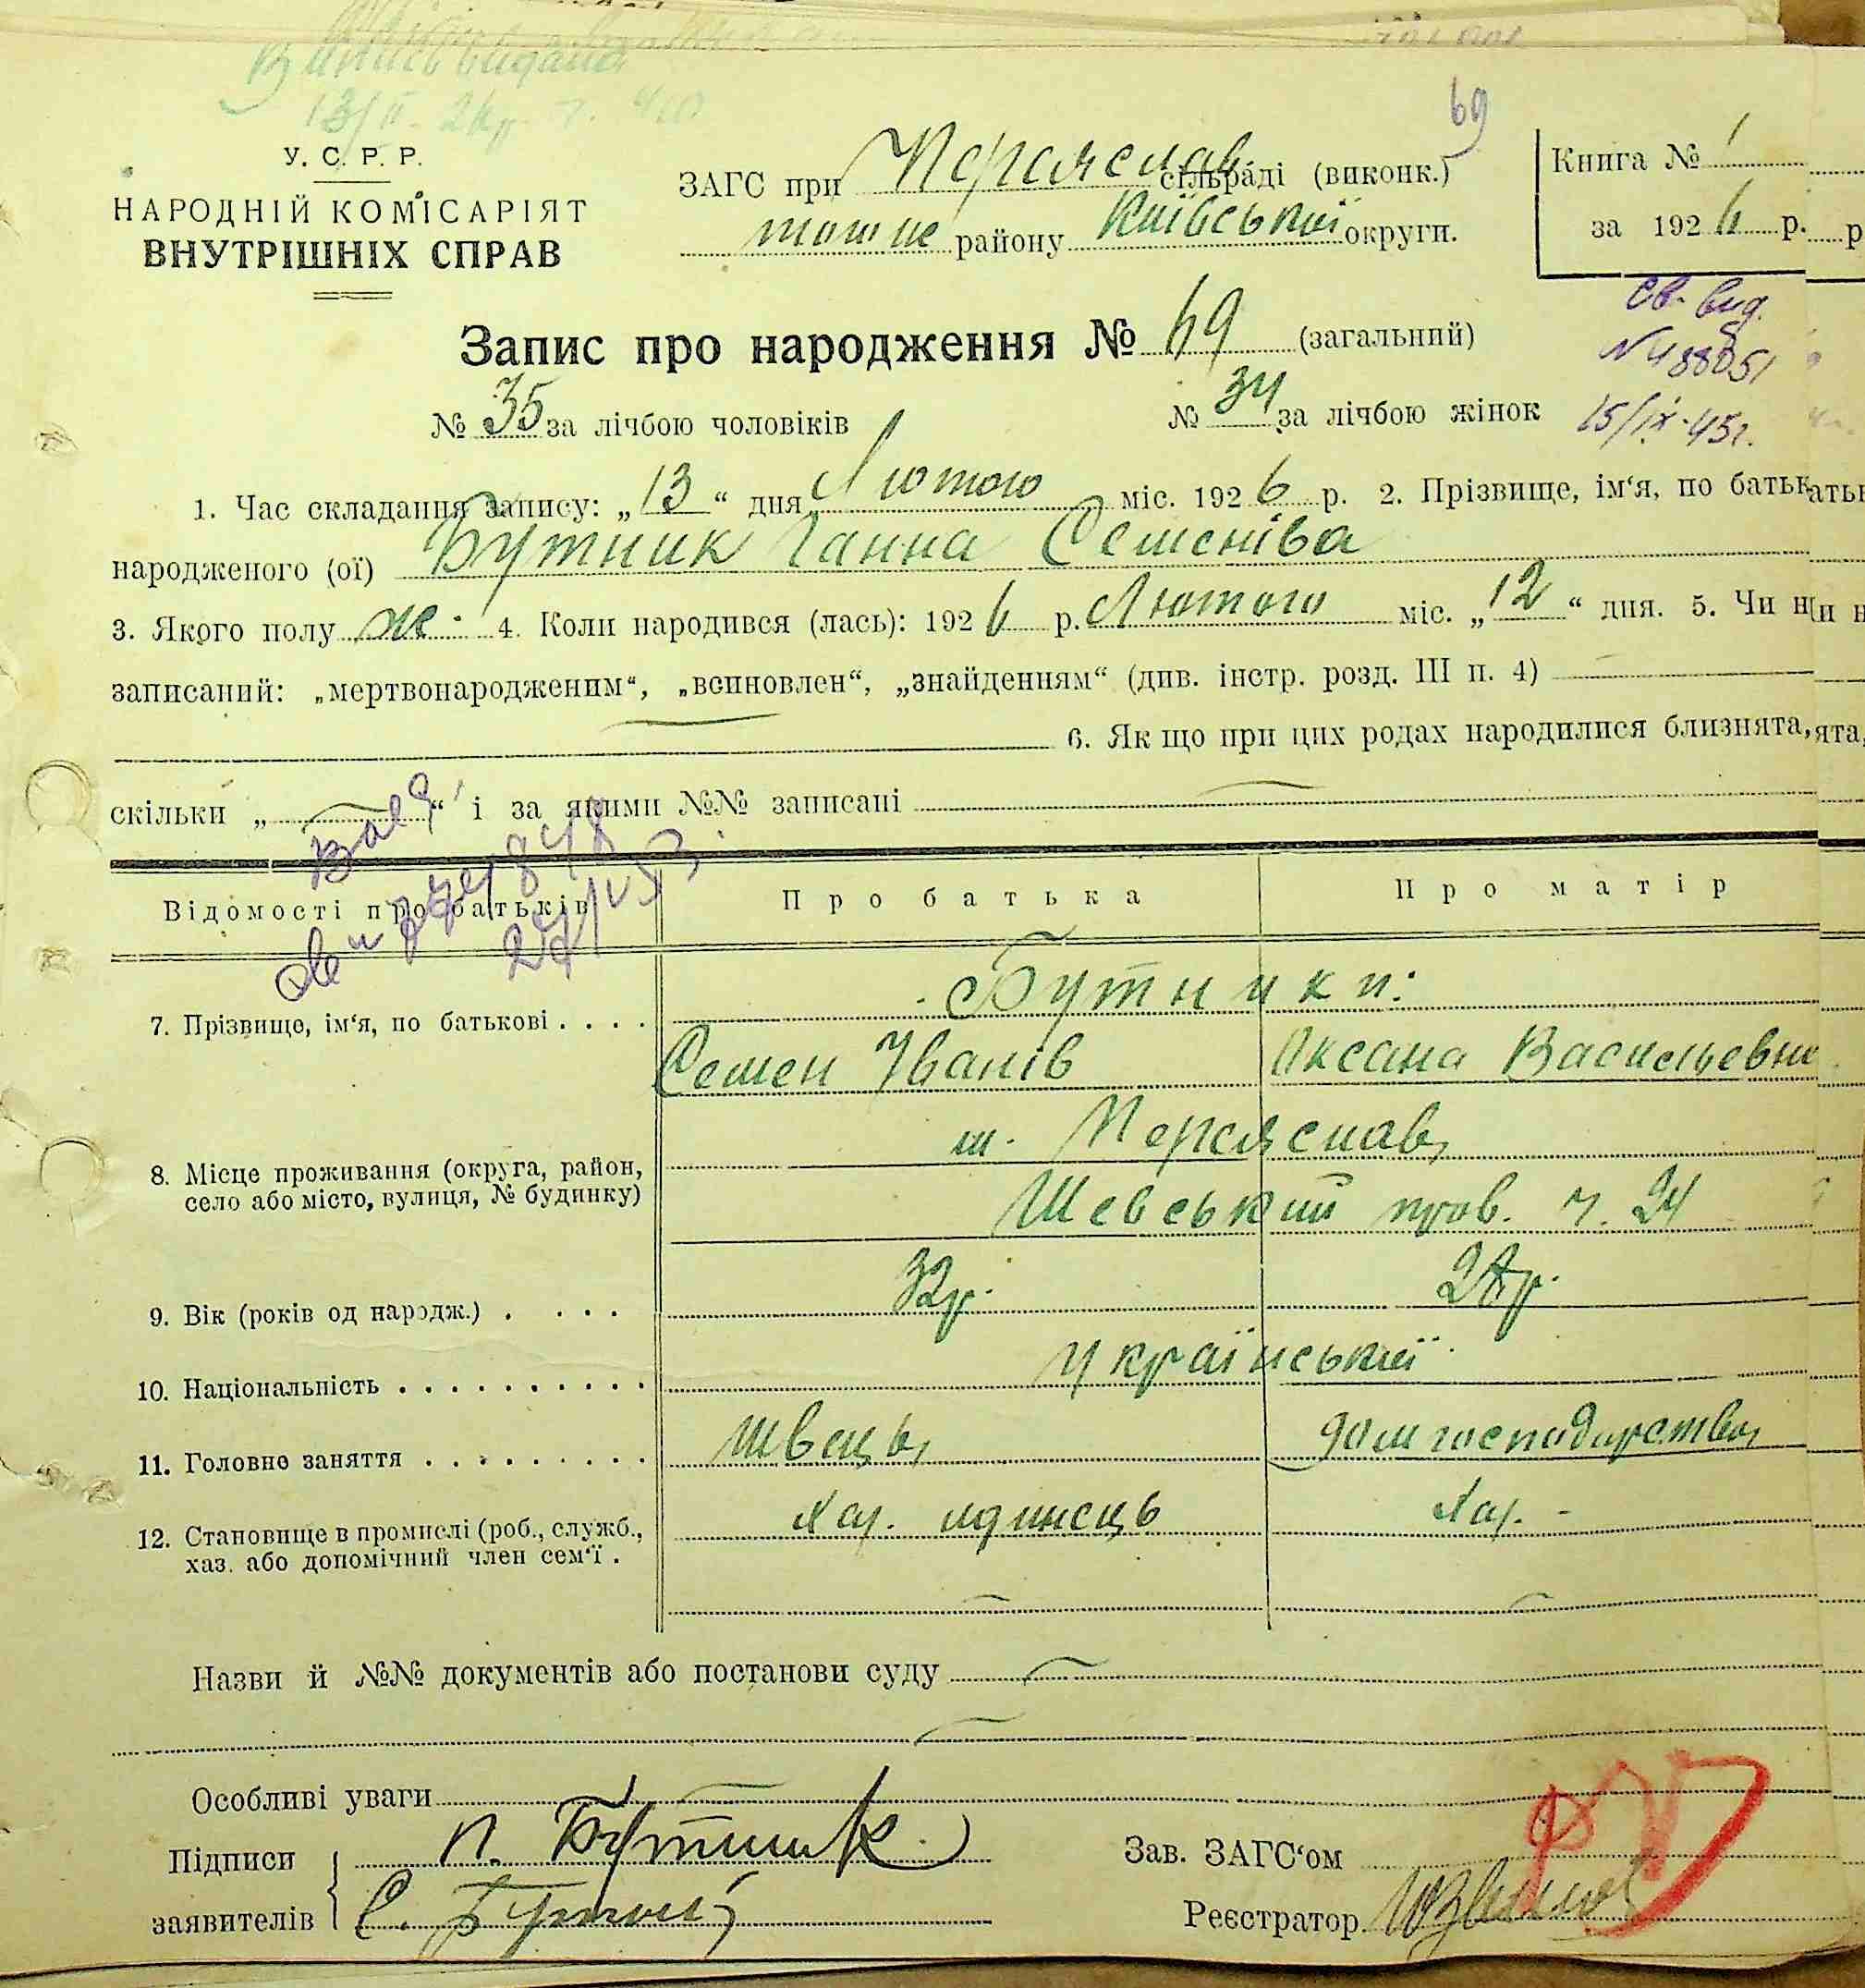 69
У. С. Р. Р.
НАРОДНІЙ КОМІСАРІЯТ
ВНУТРІШНІХ СПРАВ
ЗАГС при Переяслав. сільраді (виконк.)
тош не району Київської округи.
Книга № 1
за 1926 р.
Запис про народження № 69 (загальний)
Св. вид.
№ 488051
15/IX-45г.
№ 35 за лічбою чоловіків № 34 за лічбою жінок
1. Час складання запису: „13“ дня Лютого міс. 1926 р. 2. Прізвище, ім‘я, по батьк
народженого (ої) Бутник Ганна Семеніва
3. Якого полу же. 4. Коли народився (лась): 1926 р. Лютого міс. „12“ дня. 5. Чи н
записаний: „мертвонародженим“, „всиновлен“, „знайденням“ (див. інстр. розд. III п. 4)
6. Як що при цих родах народилися близнята,
скільки „ “ і за якими №№ записані
Відомості про батьків Про батька Про матір
7. Прізвище, ім‘я, по батькові . . . . Бутники:
Семен Іванів Оксана Васильевна
8. Місце проживання (округа, район, м. Переяслав,
село або місто, вулиця, № будинку) Шевський пров. ч. 24
9. Вік (років од народж.) . . . . 32р. р.
10. Національність . . . . . . . . . . української
11. Головне заняття . . . . . . . . . швець, домгосподарство,
12. Становище в промислі (роб., служб., Хаз. одинець Хаз. -
хаз. або допомічний член сем‘ї .
Назви й №№ документів або постанови суду
Особливі уваги
Підписи П. Бутник Зав. ЗАГС‘ом
заявителів С. Реєстратор